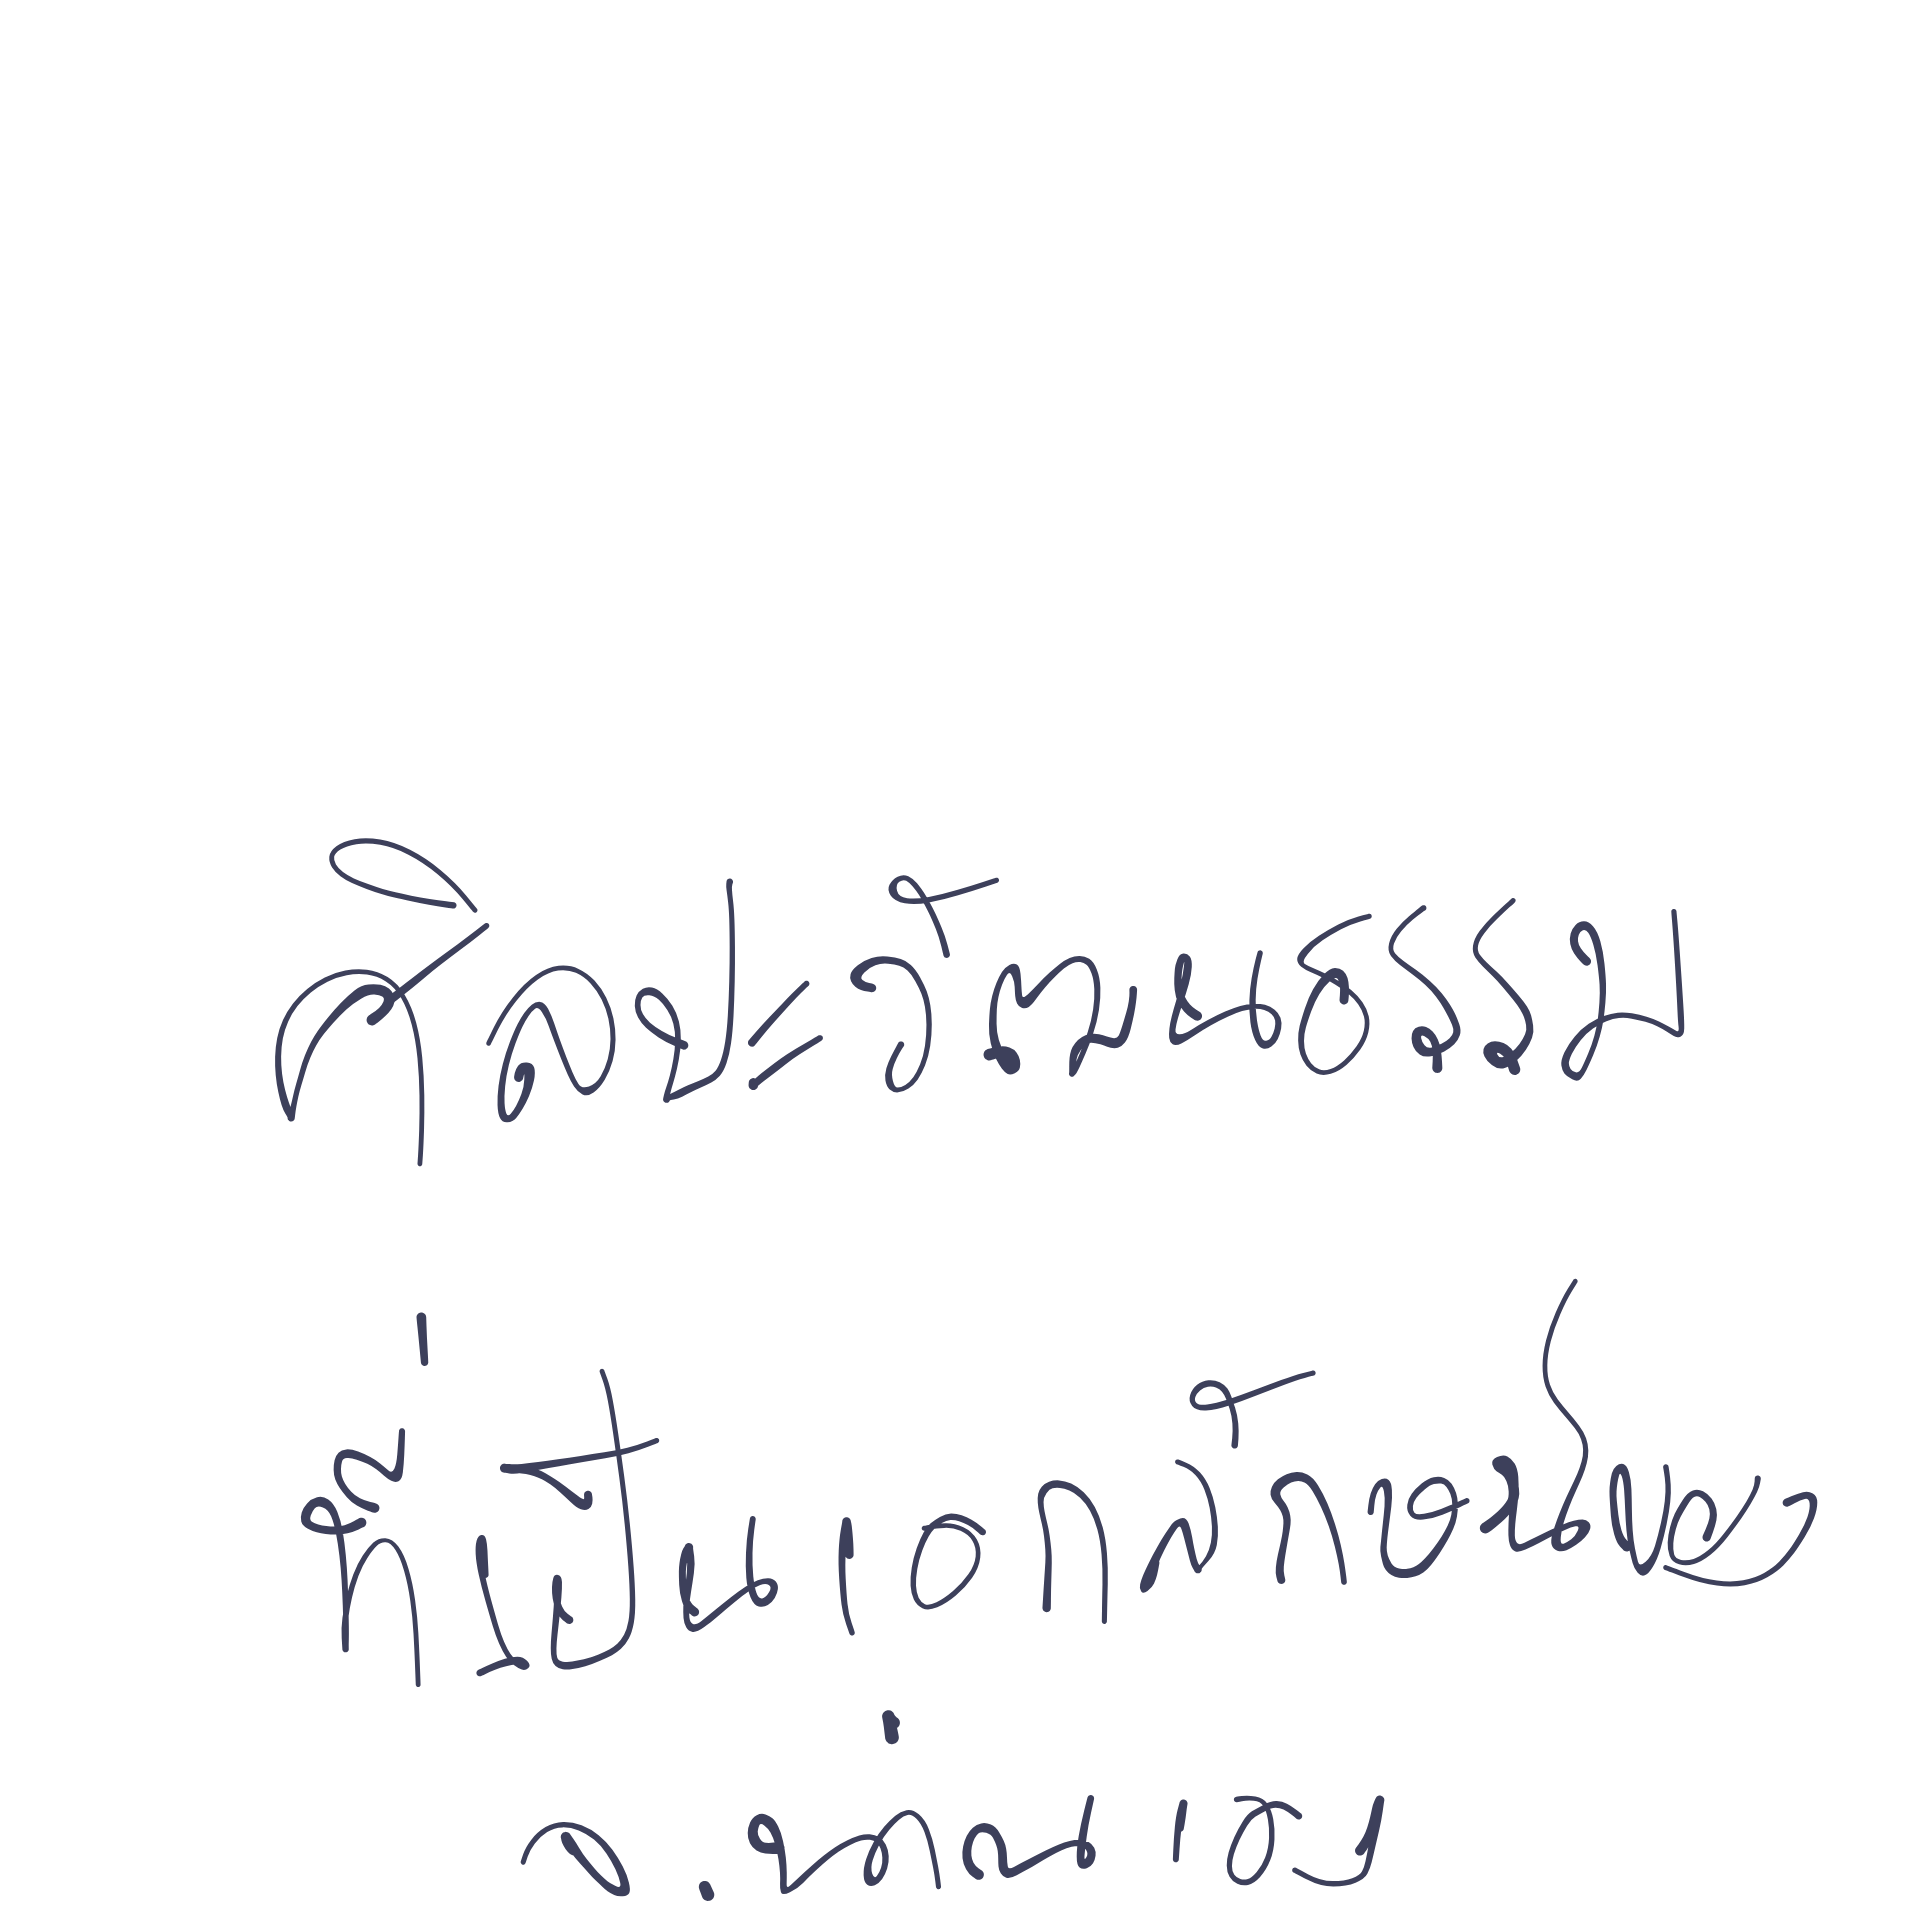 ศิลปะวัฒนธรรม
ที่เป็นเอกลักษณ์ของ
จ.น่านเอง